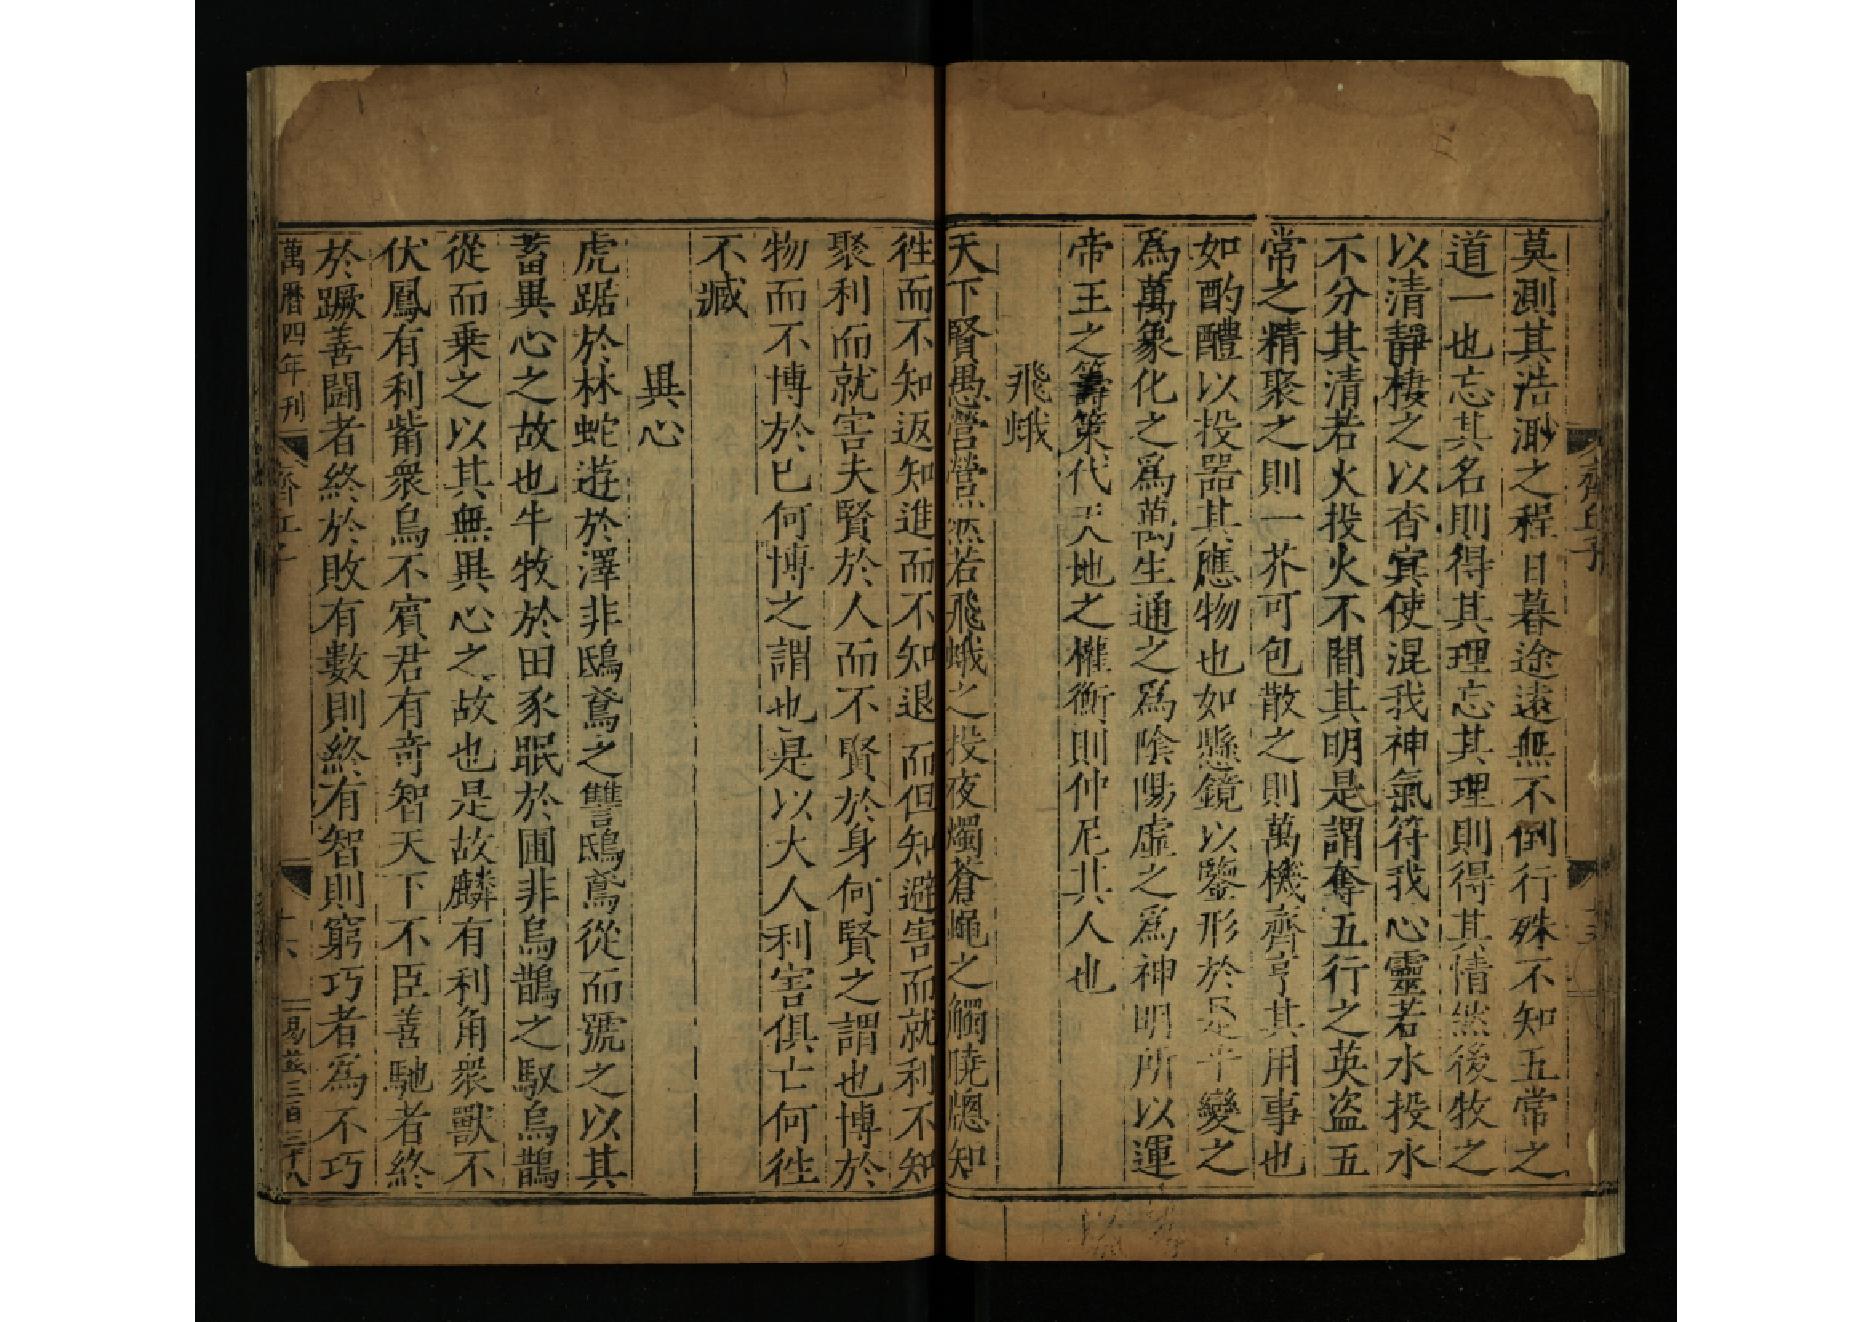 齊丘子
莫測其浩渺之程日暮途遠無不倒行殊不知五常之
道一也忘其名則得其理忘其理則得其情然後牧之
以清靜棲之以杳冥使混我神氣符我心靈若水投水
不分其清若火投火不間其明是謂奪五行之英盜五
常之精聚之則一芥可包散之則萬機齊亨其用事也
如酌醴以投器其應物也如懸鏡以鑒形於是乎變之
爲萬象化之爲萬生通之爲陰陽虛之爲神明所以運
帝王之籌策代天地之權衡則仲尼其人也
飛蛾
天下賢愚營營然若飛蛾之投夜燭蒼蠅之觸曉牕知
徃而不知返知進而不知退而但知避害而就利不知
聚利而就害夫賢於人而不賢於身何賢之謂也博於
物而不博於已何博之謂也是以大人利害俱亡何徃
不臧
異心
虎踞於林蛇遊於澤非鴟鳶之讐鴟鳶從而號之以其
蓄異心之故也牛牧於田豕眠於圃非烏鵲之馭烏鵲
從而乗之以其無異心之故也是故麟有利角衆獸不
伏鳳有利觜衆鳥不賓君有奇智天下不臣善馳者終
於蹶善鬪者終於敗有數則終有智則窮巧者爲不巧
萬曆四年刊
齊丘子
十六